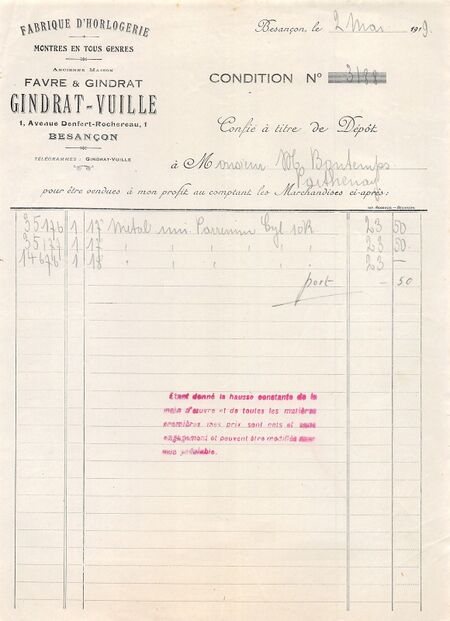 FABRIQUE D'HORLOGERIE
MONTRES EN TOUS GENRES
ANCIENNE MAISON
FAVRE & GINDRAT
GINDRAT-VUILLE
1, Avenue Denfert-Rochereau, 1
BESANÇON
TÉLÉGRAMMES: GINDRAT-VUILLE
Besançon, le 2 Mai 1919.
CONDITION N° 3188
Confié à titre de Dépôt
à Monsieur M. Bontemps
Parthenay
pour être vendues à mon profit au comptant les Marchandises ci-après:
35176 1 17 Métal uni Cyl 10R 23 50
35177 1 17 " " " " 23 50
14676 1 18 " " " " 23 –
port – 50
Étant donné la hausse constante de la
main d'œuvre et de toutes les matières
premières mes prix sont nets et sans
engagement et peuvent être modifiés sans
avis préalable.